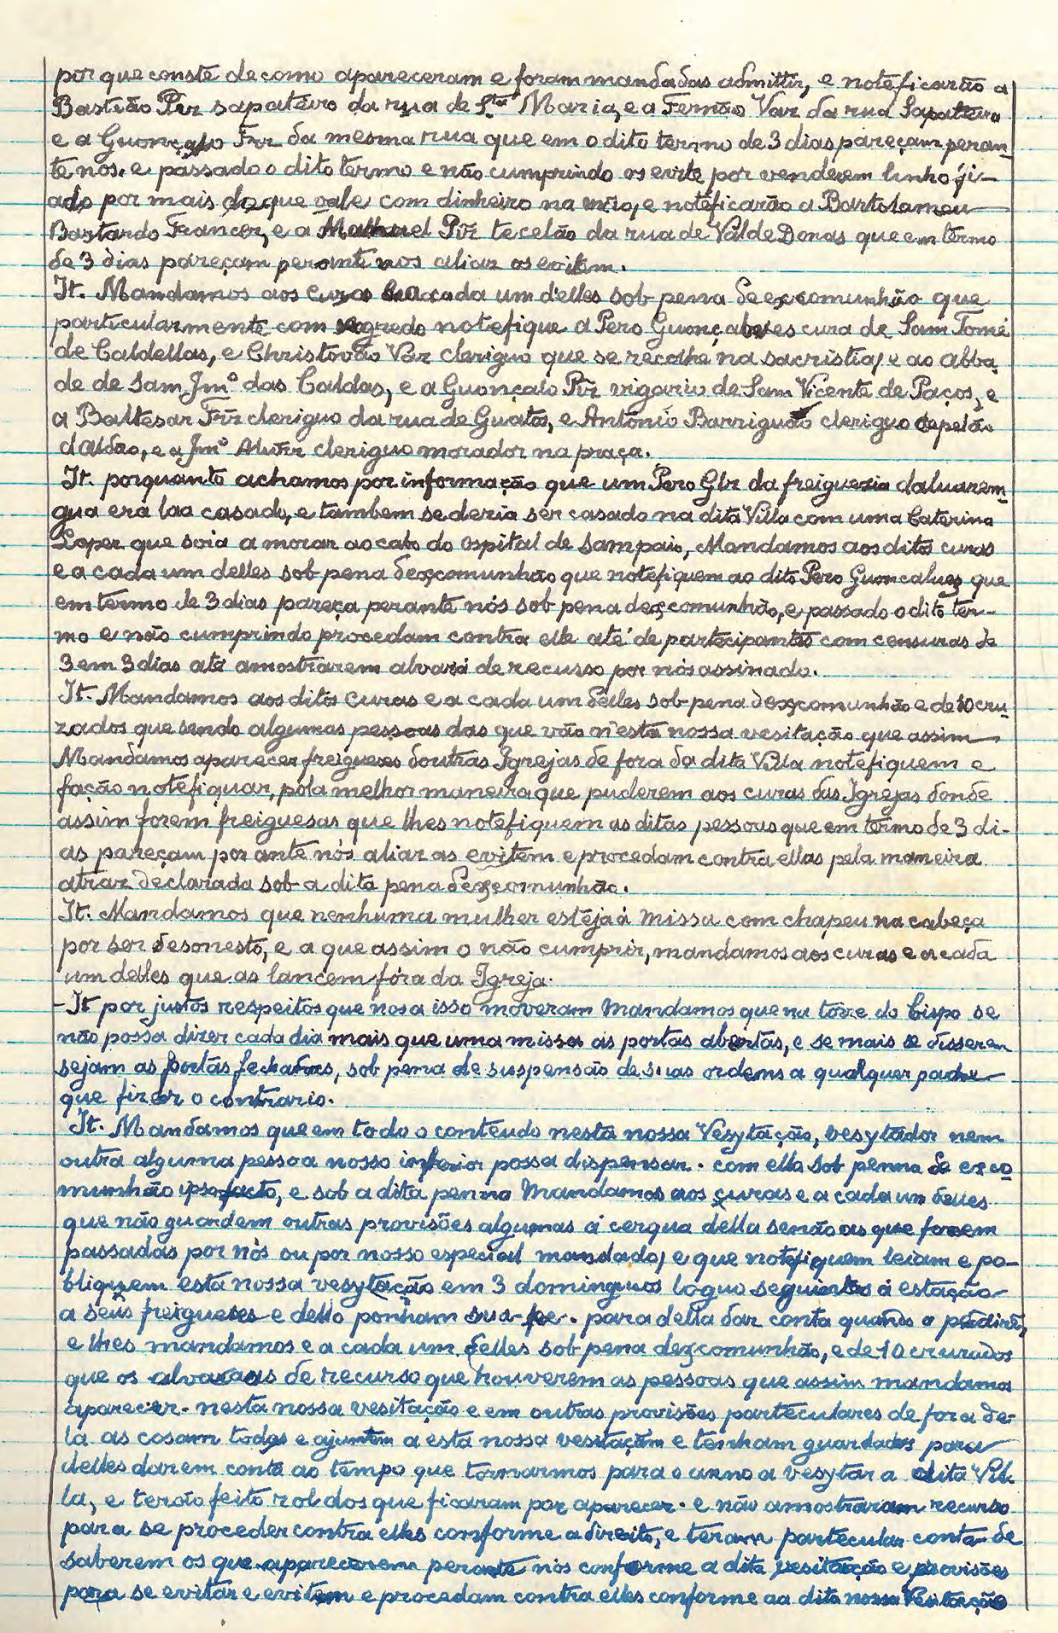 por que conste de como apareceram e foram mandadas admittir, e noteficarão a
Bastião Pirz sapateiro da rua de Sta Maria, e a Fernão Vaz da rua Sapateira
e a Guonçalo Frz da mesma rua que em o dito termo de 3 dias pareçam peran-
te nós, e passado o dito termo e não cumprindo os evite por venderem linho fi-
ado por mais do que vale com dinheiro na mão, e noteficarão a Bartolameu
Bastardo Francez, e a Mathuel Pirz tecelão da rua de Val de Donas que em termo
de 3 dias pareçam perante nos aliaz os evitem.
It. Mandamos aos curas e a cada um d'elles sob pena de excomunhão que
particularmente com segredo notefique a Pero Guonçalves cura de Sam Tomé
de Caldellas, e Christovão Vaz cleriguo que se recolhe na sacristia, e ao abba
de de Sam Jmo das Caldas, e a Guonçalo Pirz vigario de Sam Vicente de Paços, e
a Baltesar Frz cleriguo da rua de Guatos, e Antonio Barriguão cleriguo capelão
d'Aldão, e a Jmo Alvrz cleriguo morador na praça.
It. porquanto achamos por informação que um Pero Glz da freiguezia daluarem-
gua era laa casado, e tambem se deria ser casado na dita Villa com uma Caterina
Lopez que soia a morar ao cabo do ospital de Sampaio, Mandamos aos ditos curas
e a cada um delles sob pena dexcomunhão que notefiquem ao dito Pero Guoncalues que
em termo de 3 dias pareça perante nós sob pena dexcomunhão, e passado o dito ter-
mo e não cumprindo procedam contra elle até de partecipantes com censuras de
3 em 3 dias até amostrarem alvará de recusso por nós assinado.
It. Mandamos aos ditos curas e a cada um delles sob pena dexcomunhão e de 10 cru-
zados que sendo algumas pessoas das que vão n'esta nossa vesitação que assim
Mandamos aparecer freigueses doutras Igrejas de fora da dita Villa notefiquem e
fação notefiquar, pola melhor maneira que puderem aos curas das Igrejas donde
assim forem freiguesas que lhes notefiquem as ditas pessoas que em termo de 3 di-
as pareçam por ante nós aliaz as evitem e procedam contra ellas pela maneira
atraz declarada sob a dita pena dexcomunhão.
It. Mandamos que nenhuma mulher esteja á missa com chapeu na cabeça
por ser desonesto, e a que assim o não cumprir, mandamos aos curas e a cada
um delles que as lancem fóra da Igreja.
- It por justos respeitos que nos a isso moveram Mandamos que na torre do Bispo se
não possa dizer cada dia mais que uma missa as portas abertas, e se mais se disserem
sejam as portas fechadas, sob pena de suspensão de suas ordens a qualquer padre
que fizer o contrario.
It. Mandamos que em todo o conteudo nesta nossa Vesytação, vesytador nem
outra alguma pessoa nosso inferior possa dispensar. com ella sob penna de exco
munhão ipsofacto, e sob a dita penna Mandamos aos curas e a cada um delles
que não guardem outras provisões algumas á cerqua della senão as que forem
passadas por nós ou por nosso especial mandado, e que notefiquem leiam e po-
bliquem esta nossa vesytação em 3 dominguos loguo seguientes á estação
a seus freigueses e dello ponham sua fee. para della dar conta quando a pedirē,
e lhes mandamos e a cada um delles sob pena dexcomunhão, e de 10 cruzados
que os alvaraas de recurso que houverem as pessoas que assim mandamos
aparecer. nesta nossa vesitação e em outras provisões parteculares de fora de-
la as cosam todas e ajuntem a esta nossa vesitaçam e tenham guardadas para
delles darem conta ao tempo que tornarmos para o anno a vesytar a dita Vil-
la, e terão feito rol dos que ficaram por aparecer. e não amostraram recurso
para se proceder contra elles conforme a direito, e teram partecular conta de
saberem os que aparecerem perante nós conforme a dita vesitação e provisões
para se evitar e evitem e procedam contra elles conforme aa dita nossa Vesitação